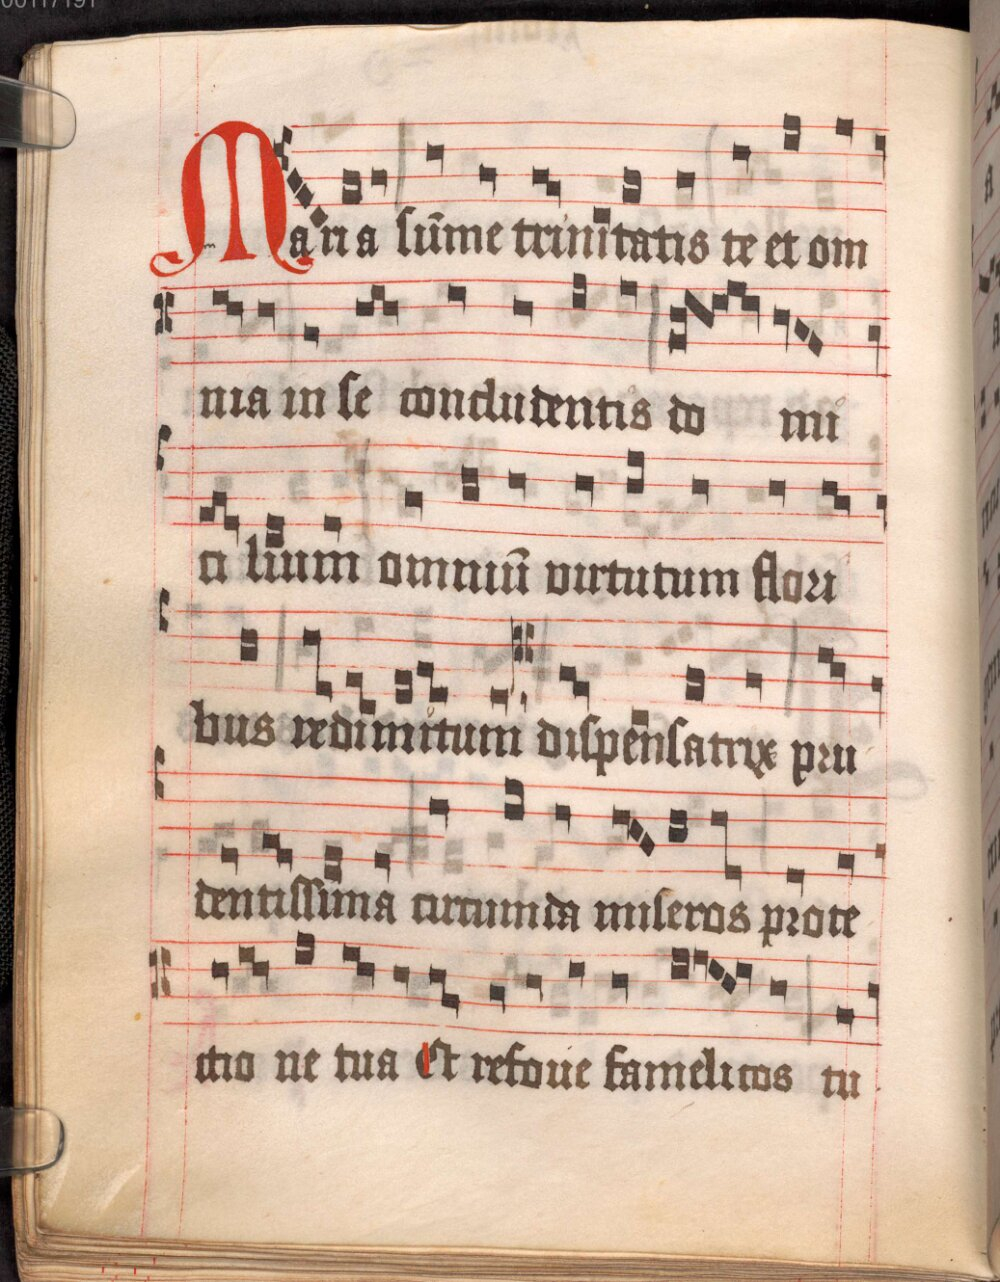 Maria sūme trinitatis te et om
nia in se concludentis do mi
ci lium omniū virtutum flori
bus redimitum dispensatrix pru
dentissima circumda miseros prote
ctio ne tua Et refoue famelicos tu